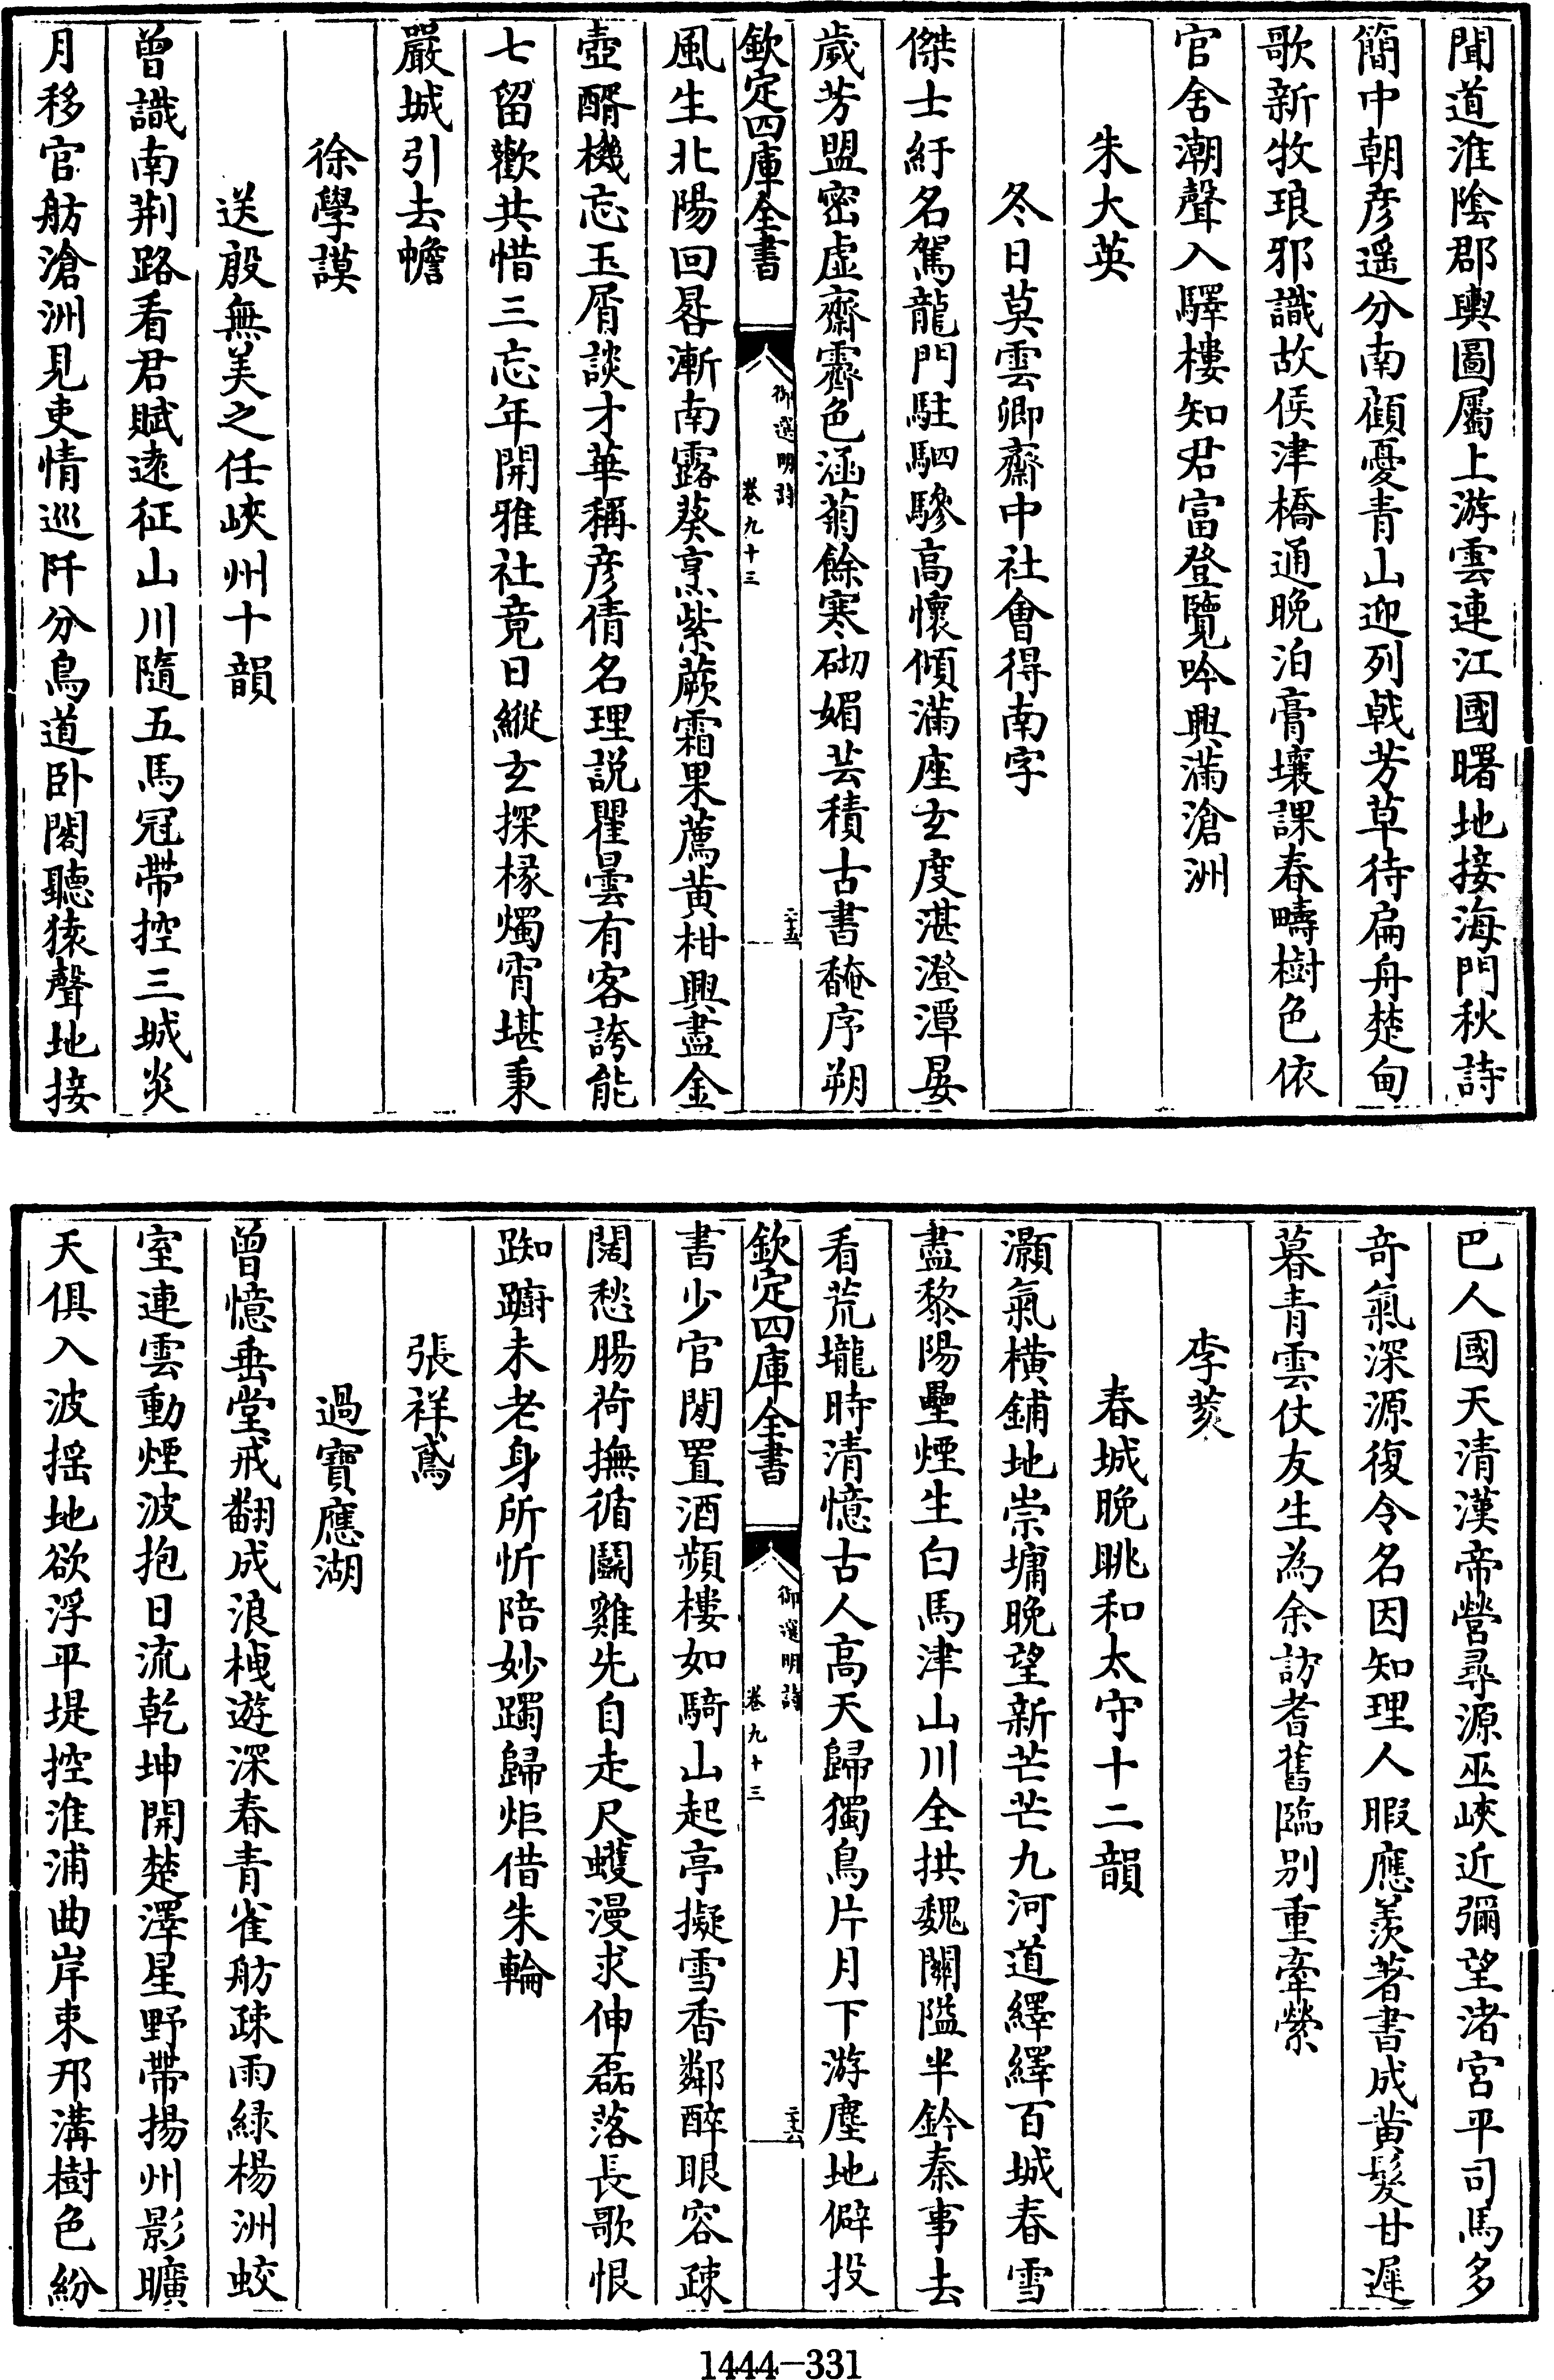 聞道淮陰郡輿圖屬上游雲連江國曙地接海門秋詩
簡中朝彦遥分南顧憂青山迎列戟芳草待扁舟楚甸
歌新牧琅邪識故侯津橋通晚泊膏壤課春疇樹色依
官舍潮聲入驛樓知君富登覽吟興滿滄洲
朱大英
冬日莫雲卿齋中社會得南字
傑士紆名駕龍門駐駟驂高懷傾滿座玄度湛澄潭晏
歲芳盟密虚齋霽色涵菊餘寒砌媚芸積古書馣序朔
欽定四庫全書
御選明詩
卷九十三
二十五
風生北陽回晷漸南露葵烹紫蕨霜果薦黄柑興盡金
壺醑機忘玉屑談才華稱彦倩名理説瞿曇有客誇能
七留歡共惜三忘年開雅社竟日縱玄探椽燭宵堪秉
嚴城引去幨
徐學謨
送殷無美之任峽州十韻
曾識南荆路看君賦遠征山川隨五馬冠帶控三城炎
月移官舫滄洲見吏情巡阡分鳥道卧閣聽猿聲地接
巴人國天清漢帝營尋源巫峽近彌望渚宮平司馬多
奇氣深源復令名因知理人暇應羨著書成黄髮甘遲
暮青雲仗友生為余訪耆舊臨别重牽縈
李蓘
春城晚眺和太守十二韻
灝氣横鋪地崇墉晚望新芒芒九河道繹繹百城春雪
盡黎陽壘煙生白馬津山川全拱魏關隘半鈐秦事去
看荒壠時清憶古人高天歸獨鳥片月下游塵地僻投
欽定四庫全書
御選明詩
卷九十三
二十六
書少官閒置酒頻樓如騎山起亭擬雪香鄰醉眼容疎
闊愁腸荷撫循鬭雞先自走尺蠖漫求伸磊落長歌恨
踟躕未老身所忻陪妙躅歸炬借朱輪
張祥鳶
過寶應湖
曾憶垂堂戒翻成浪栧遊深春青雀舫疎雨緑楊洲蛟
室連雲動煙波抱日流乾坤開楚澤星野帶揚州影曠
天俱入波揺地欲浮平堤控淮浦曲岸束邗溝樹色紛
1444-331